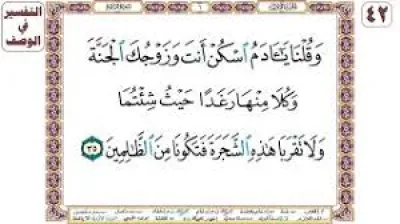 التفسير
في
الوصف
٦
٤٢
وَقُلْنَا يَٰٓـَٔادَمُ ٱسْكُنْ أَنتَ وَزَوْجُكَ ٱلْجَنَّةَ
وَكُلَا مِنْهَا رَغَدًا حَيْثُ شِئْتُمَا
وَلَا تَقْرَبَا هَٰذِهِ ٱلشَّجَرَةَ فَتَكُونَا مِنَ ٱلظَّٰلِمِينَ ٣٥